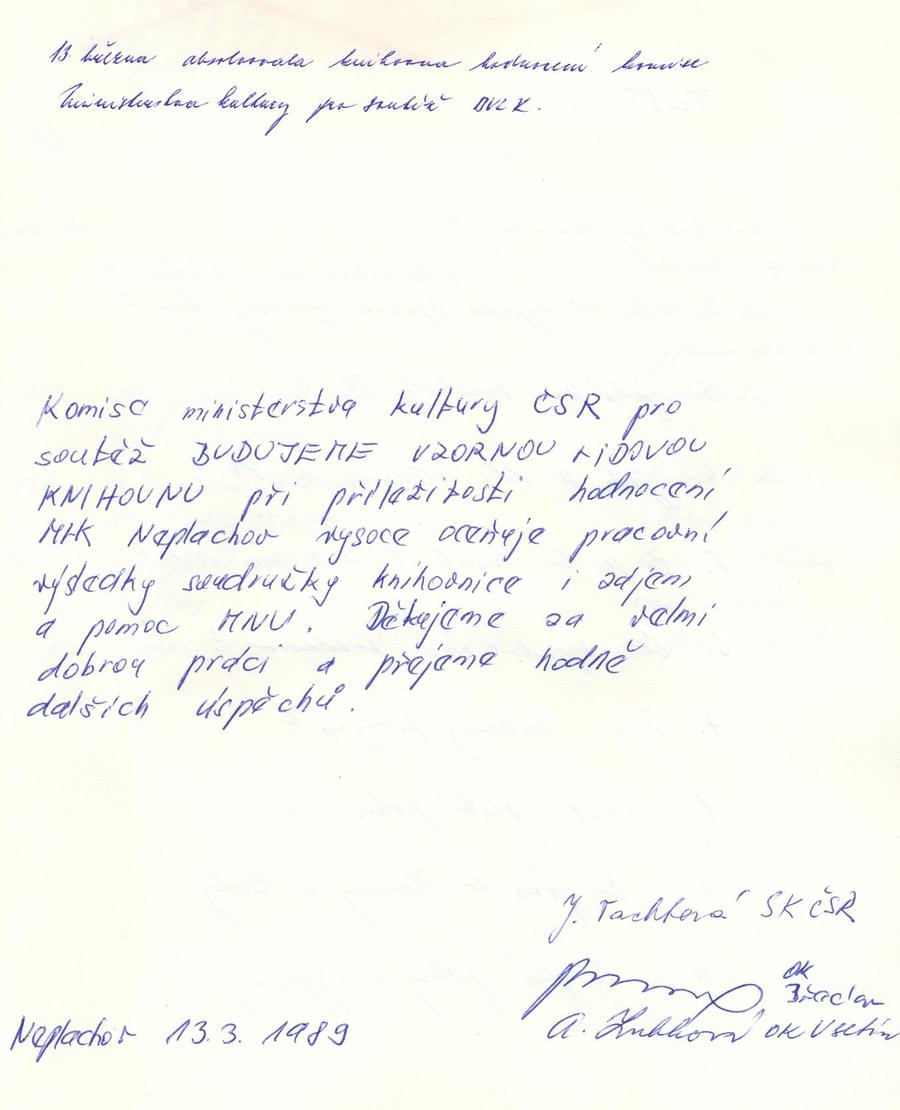 13. března absolvovala knihovna hodnocení komise
Ministerstva kultury pro soutěž BVLK.
Komise ministerstva kultury ČSR pro
soutěž BUDUJEME VZORNOU LIDOVOU
KNIHOVNU při příležitosti hodnocení
MLK Neplachov vysoce oceňuje pracovní
výsledky soudružky knihovnice i zájem
a pomoc MNV. Děkujeme za velmi
dobrou práci a přejeme hodně
dalších úspěchů.
J. SK ČSR
OK
Břeclav
A. OK Vsetín
Neplachov 13.3. 1989